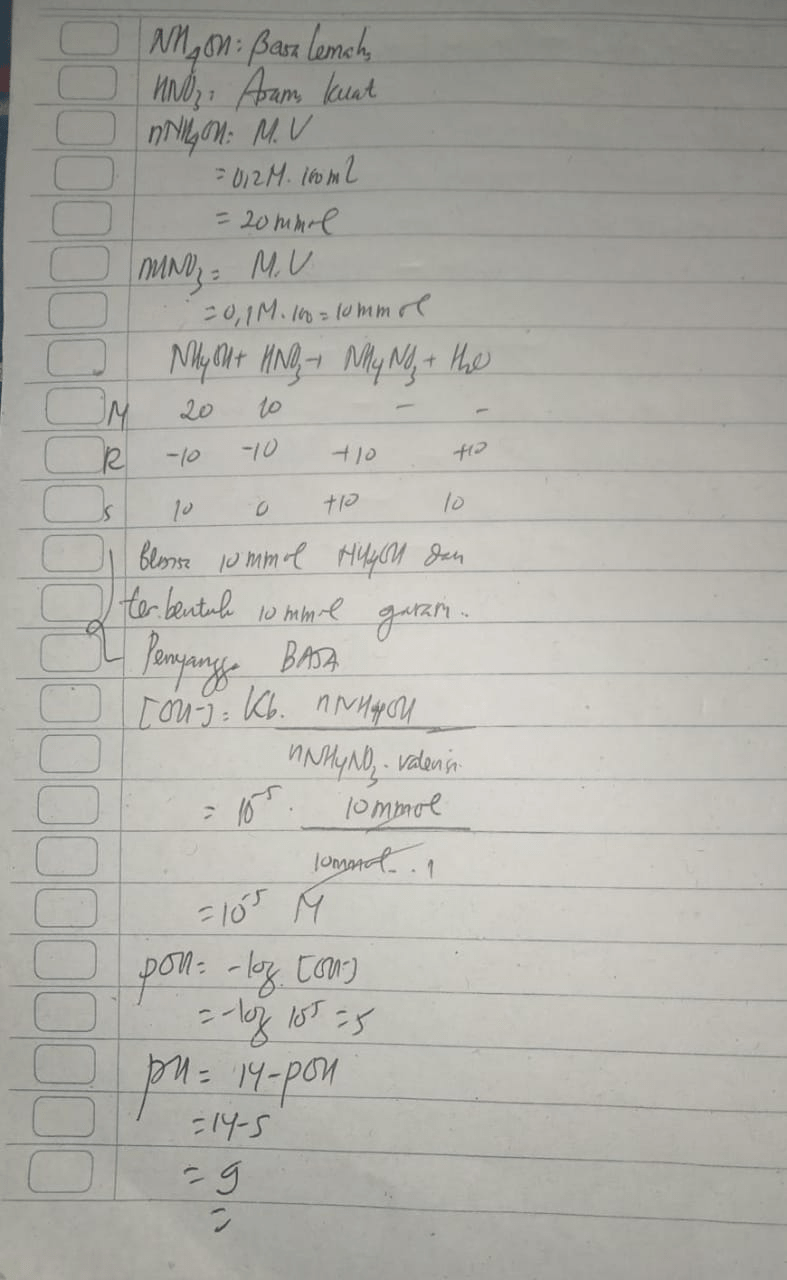 NH4OH: Basa Lemah
HNO3: Asam kuat
nNH4OH: M.V
= 0,2M. 100ml
= 20 mmol
nHNO3 = M.V
= 0,1M. 100 = 10 mmol
NH4OH + HNO3 → NH4NO3 + H2O
M 20 10 - -
R -10 -10 +10 +10
S 10 0 +10 10
10 mmol NH4OH dan
terbentuk 10 mmol garam..
Penyangga BASA
[OH-] = Kb. nNH4OH
nNH4NO3. valensi
= 10-5. 10 mmol
10 mmol. . 1
= 10-5 M
pOH = -log [OH-]
= -log 10-5 = 5
pH = 14-pOH
= 14-5
= 9
=